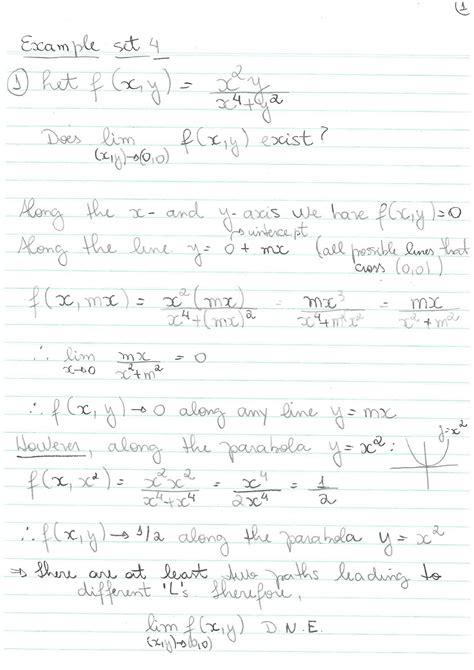 1
Example set 4
① Let f(x,y) = x²y / (x⁴+y²)
Does lim (x,y)→(0,0) f(x,y) exist?
Along the x- and y-axis we have f(x,y)=0
↳ y intercept
Along the line y = 0 + mx (all possible lines that
cross (0,0))
f(x, mx) = x²(mx) / (x⁴+(mx)²) = mx³ / (x⁴+m²x²) = mx / (x²+m²)
∴ lim x→0 mx / (x²+m²) = 0
∴ f(x,y) → 0 along any line y = mx
However, along the parabola y = x² : y=x²
f(x, x²) = x²x² / (x⁴+x⁴) = x⁴ / 2x⁴ = 1/2
∴ f(x,y) → 1/2 along the parabola y = x²
⇒ there are at least two paths leading to
different 'L's. Therefore,
lim (x,y)→(0,0) f(x,y) D.N.E.